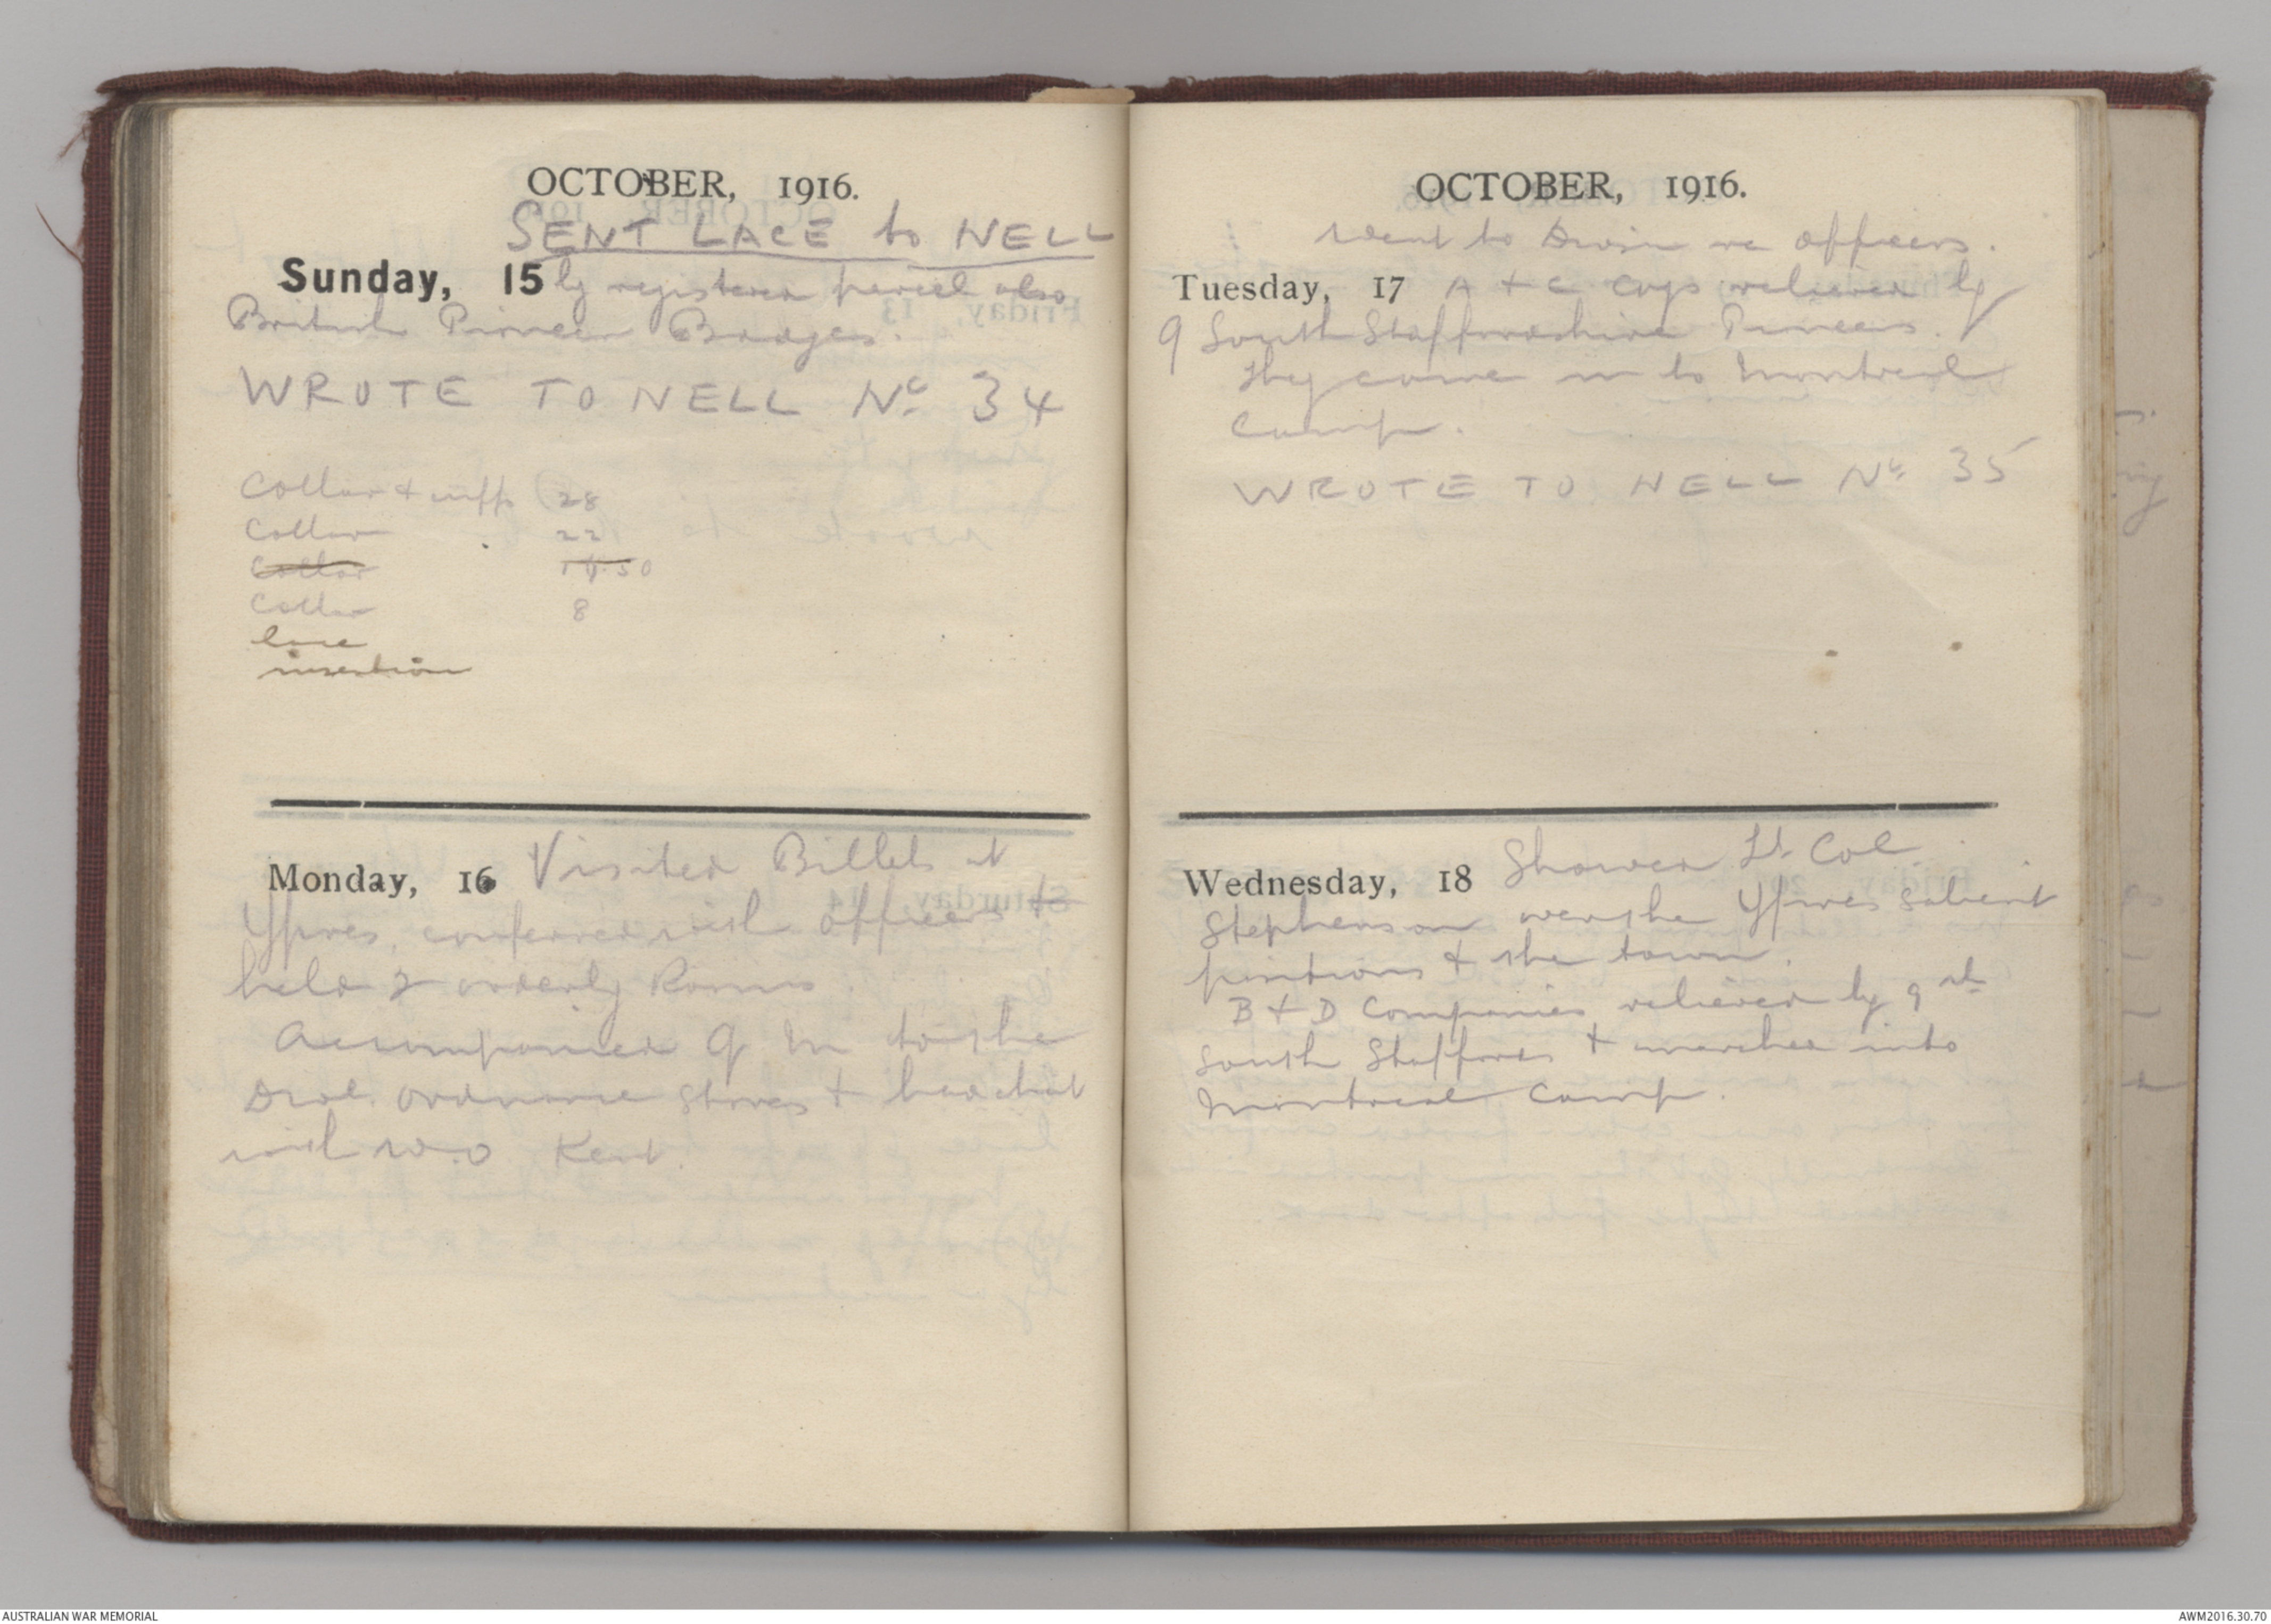 OCTOBER, 1916.
SENT LACE to NELL
Sunday, 15 by registered parcel also
British Pioneer Badges.
WROTE TO NELL No 34
Collar & cuffs 28
Collar 22
Collar
Collar 8
lace
insertion
Monday, 16 Visited Billets at
Ypres, conferred with officers &
held 2 orderly Rooms.
Accompanied Q M to the
Divl. Ordnance Stores & had chat
with W.O Kent.
OCTOBER, 1916.
Went to Divsn re officers.
Tuesday, 17 A & C Coys relieved by
9 South Staffordshire Pioneers.
They came in to Montreal
Camp.
WROTE TO NELL No 35
Wednesday, 18 Showed Lt. Col
Stephenson over the Ypres Salient
positions & the town.
B & D Companies relieved by 9th
South Staffords & marched into
Montreal Camp.
AUSTRALIAN WAR MEMORIAL
AWM2016.30.70